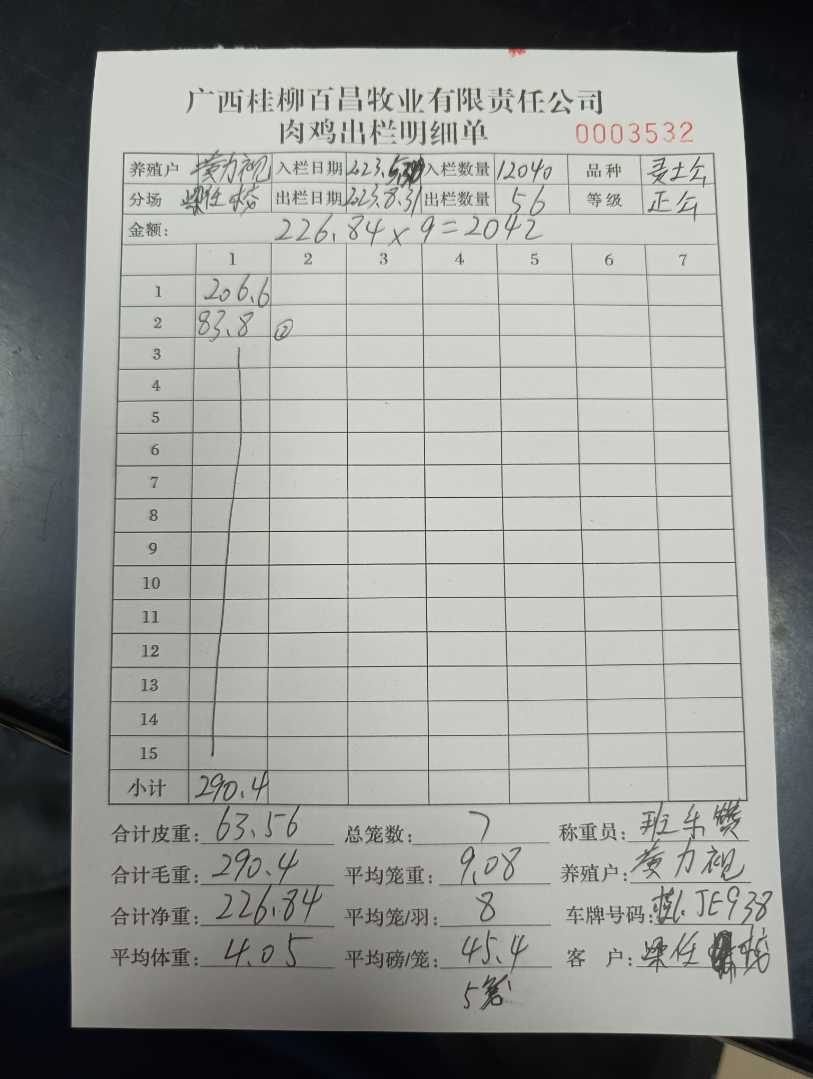 广西桂柳百昌牧业有限责任公司
肉鸡出栏明细单 0003532
养殖户 黄力视 入栏日期 2023.5. 入栏数量 12040 品种 麦土公
分场 梁任 出栏日期 2023.8.31 出栏数量 56 等级 正公
金额: 226.84×9=2042
1 2 3 4 5 6 7
1 206.6
2 83.8 ②
3
4
5
6
7
8
9
10
11
12
13
14
15
小计 290.4
合计皮重: 63.56 总笼数: 7 称重员: 班乐
合计毛重: 290.4 平均笼重: 9.08 养殖户: 黄力视
合计净重: 226.84 平均笼/羽: 8 车牌号码: JE938
平均体重: 4.05 平均磅/笼: 45.4 客 户: 梁任